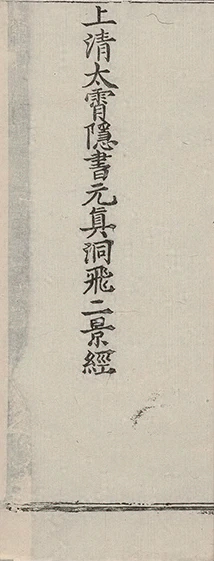 上清太霄隱書元真洞飛二景經